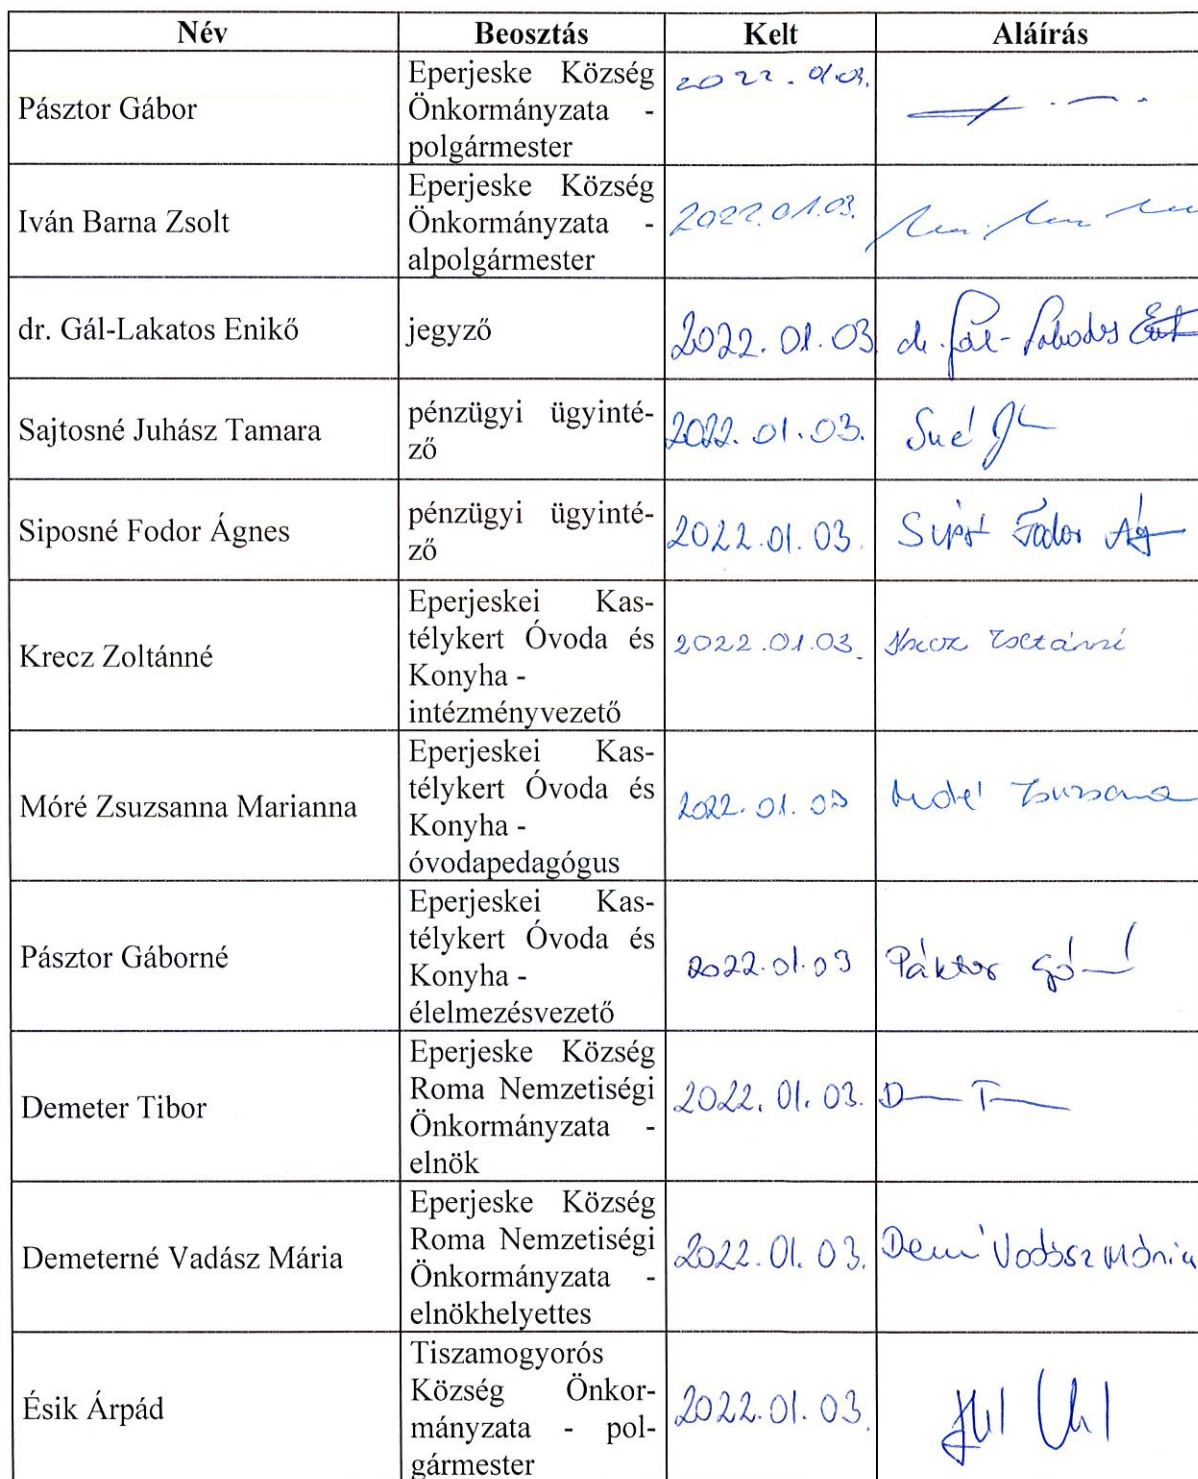 Név Beosztás Kelt Aláírás
Pásztor Gábor
Eperjeske Község
Önkormányzata -
polgármester
2022. 01.03.
Iván Barna Zsolt
Eperjeske Község
Önkormányzata -
alpolgármester
2022.01.03.
dr. Gál-Lakatos Enikő
jegyző
2022. 01.03
dr. Gál-Lakatos
Sajtosné Juhász Tamara
pénzügyi ügyinté-
ző
2022. 01.03.
Siposné Fodor Ágnes
pénzügyi ügyinté-
ző
2022.01.03.
Fodor Ág
Krecz Zoltánné
Eperjeskei Kas-
télykert Óvoda és
Konyha -
intézményvezető
2022.01.03.
Krecz Zoltánné
Móré Zsuzsanna Marianna
Eperjeskei Kas-
télykert Óvoda és
Konyha -
óvodapedagógus
2022. 01. 03
Móré Zsuzsanna
Pásztor Gáborné
Eperjeskei Kas-
télykert Óvoda és
Konyha -
élelmezésvezető
2022.01.03
Pásztor
Demeter Tibor
Eperjeske Község
Roma Nemzetiségi
Önkormányzata -
elnök
2022. 01. 03.
D T
Demeterné Vadász Mária
Eperjeske Község
Roma Nemzetiségi
Önkormányzata -
elnökhelyettes
2022.01.03.
Demé Vadász Mária
Ésik Árpád
Tiszamogyorós
Község Önkor-
mányzata - pol-
gármester
2022.01.03.